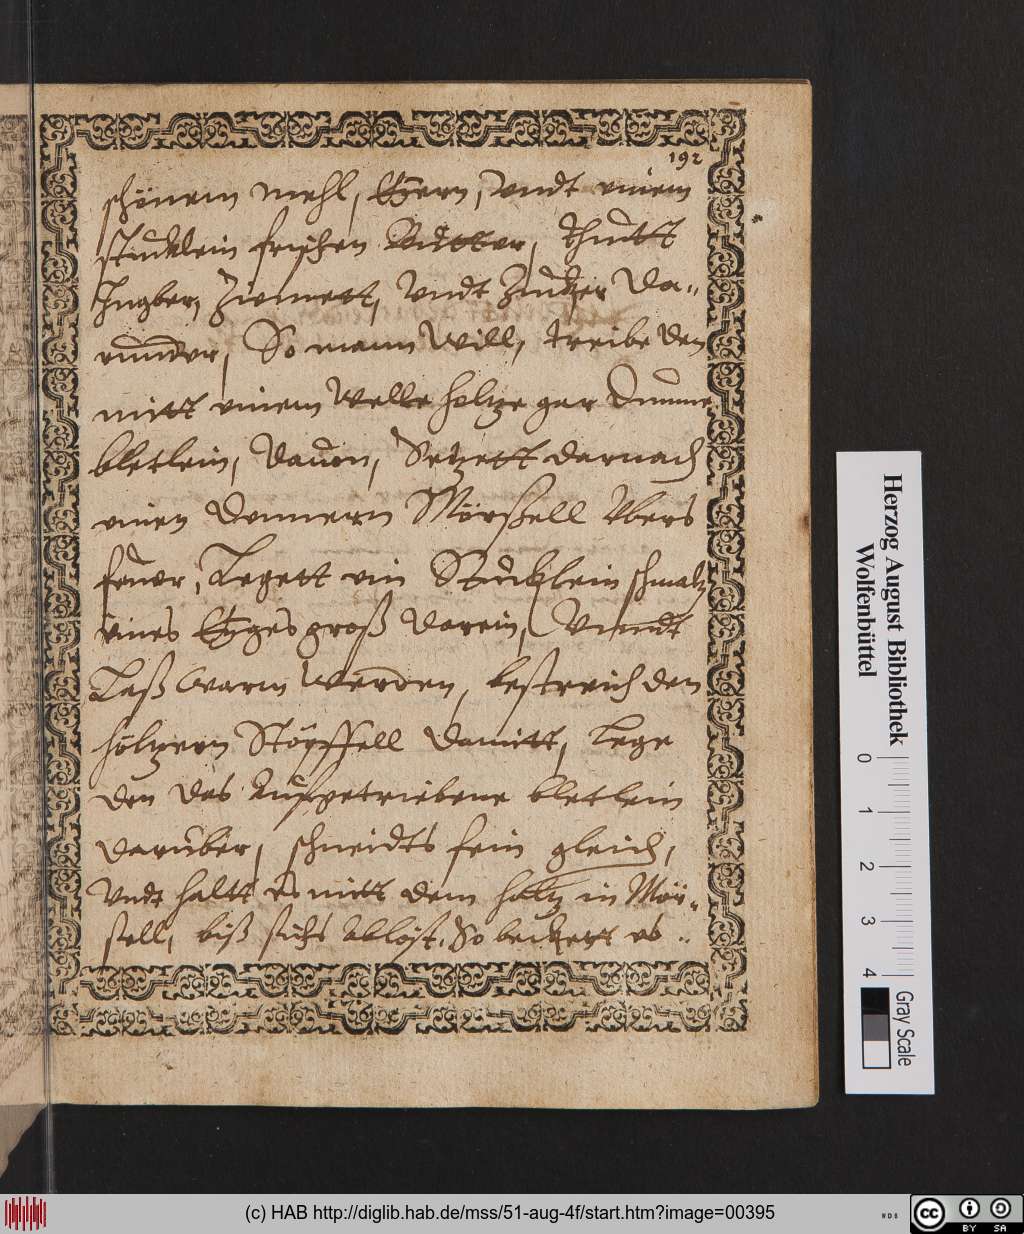 192
schönem mehl, Eÿern, Vndt einem
stücklein frischen Butter, thutt
Ingber, Zimmett, Vndt Zucker Da-
runder, So mann Will, treibe den
mitt einem Welle holtze gar Dünne
bletlein, Dauon, Setzett darnach
einen Donnern Mörßell Vbers
feuer, Legett ein Stücklein schmaltz
eines Eÿges groß Darein, Vnndt
Laß Warm Werden, bestreich den
höltzern Stöpffell damitt, Lege
den das Außgetriebene bletlein
darüber, schneidts fein gleich,
Vndt haltt es mitt dem holtz in Mör-
sell, biß sichs Ablöst. So backett es
Herzog August Bibliothek
Wolfenbüttel
0 1 2 3 4
Gray Scale
(c) HAB http://diglib.hab.de/mss/51-aug-4f/start.htm?image=00395
WDB
cc BY SA